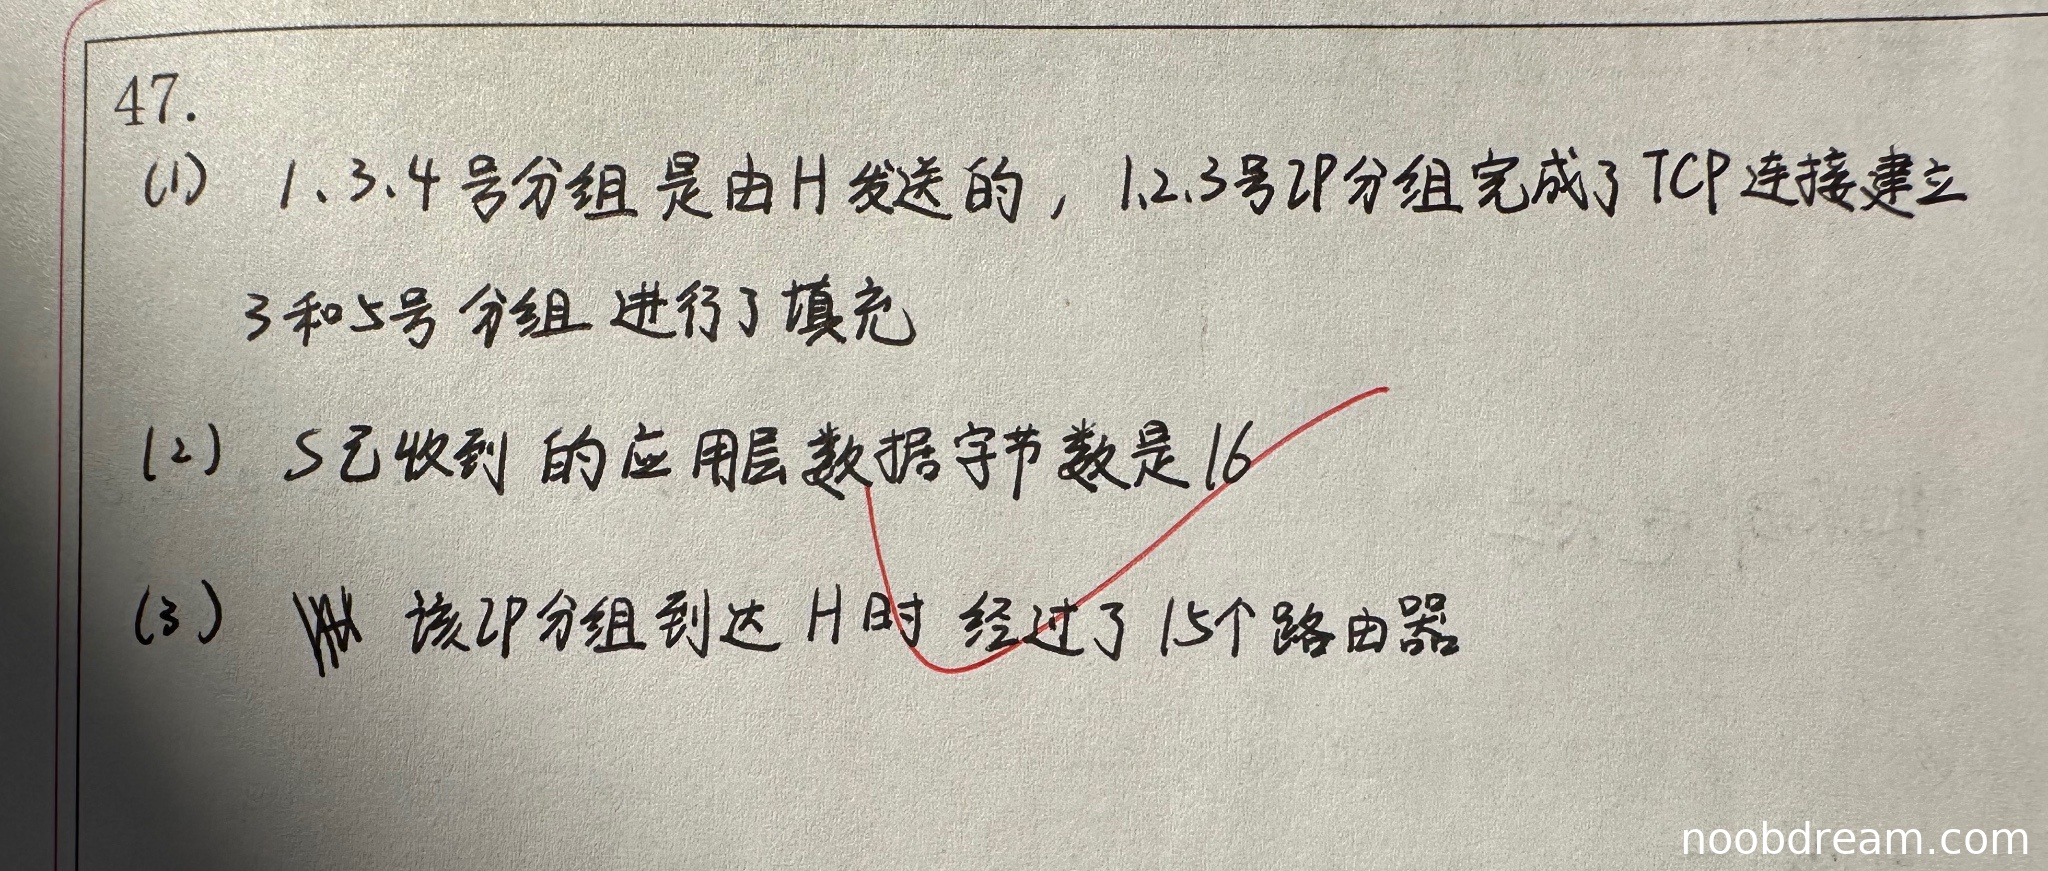 47.
(1) 1、3、4号分组是由H发送的，1.2.3号IP分组完成了TCP连接建立
3和5号分组进行了填充
(2) S已收到的应用层数据字节数是16
(3) 该IP分组到达H时经过了15个路由器
noobdream.com